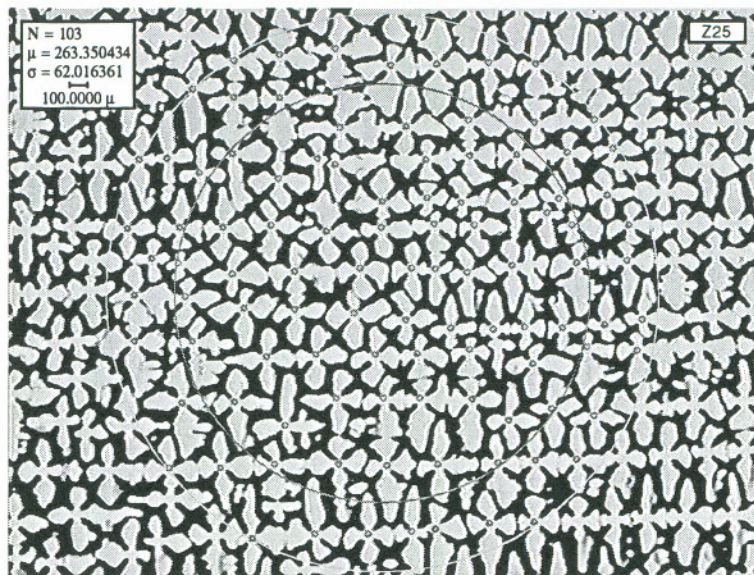 N = 103
μ = 263.350434
σ = 62.016361
100.0000 μ
Z25